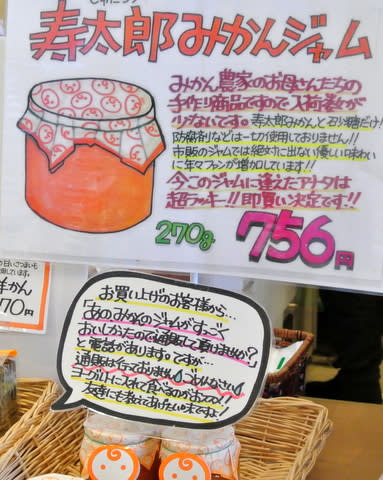 寿太郎みかんジャム
みかん農家のお母さんたちの
手作り商品ですので入荷数が
少ないです。寿太郎みかんと召少糖だけ!
防腐剤などは一切使用しておりません!!
市販のジャムでは絶対に出ない優しい味わい
に年々ファンが増加しています!!
今このジャムに逢えたアナタは
超ラッキー!!即買い決定です!!
270g
756円
お買い上げのお客様から…
「あのみかんのジャムがすっごく
おいしかったので通販して頂けませんか?」
と電話があります。ですが…
通販は行っておりません。ごめんなさい。
ヨーグルトに入れて食べるのがおススメ!
友達にも教えてあげたい味ですよ!